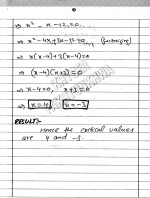 ⇒ x² - x - 12 = 0
⇒ x² - 4x + 3x - 12 = 0 (factorizing)
⇒ x(x-4) + 3(x-4) = 0
⇒ (x-4)(x+3) = 0
⇒ x-4=0, x+3=0
⇒ x=4, x=-3
RESULT:-
Hence the critical values
are 4 and -3.